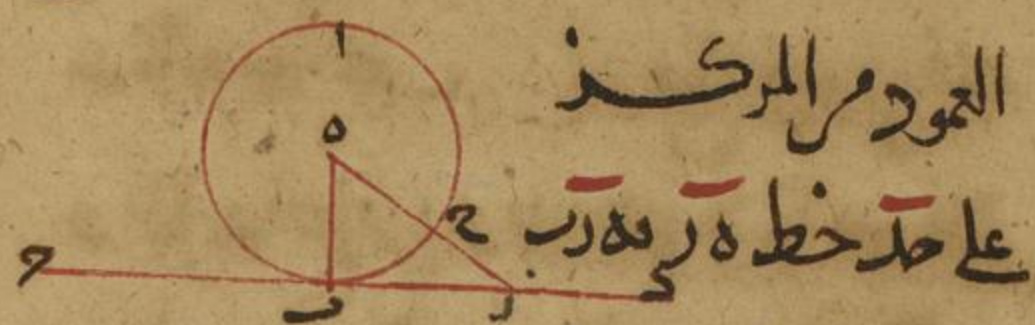 العمود من المركز
على حد خط ه ر
ا
ه
ح
ح
ب
ر
د